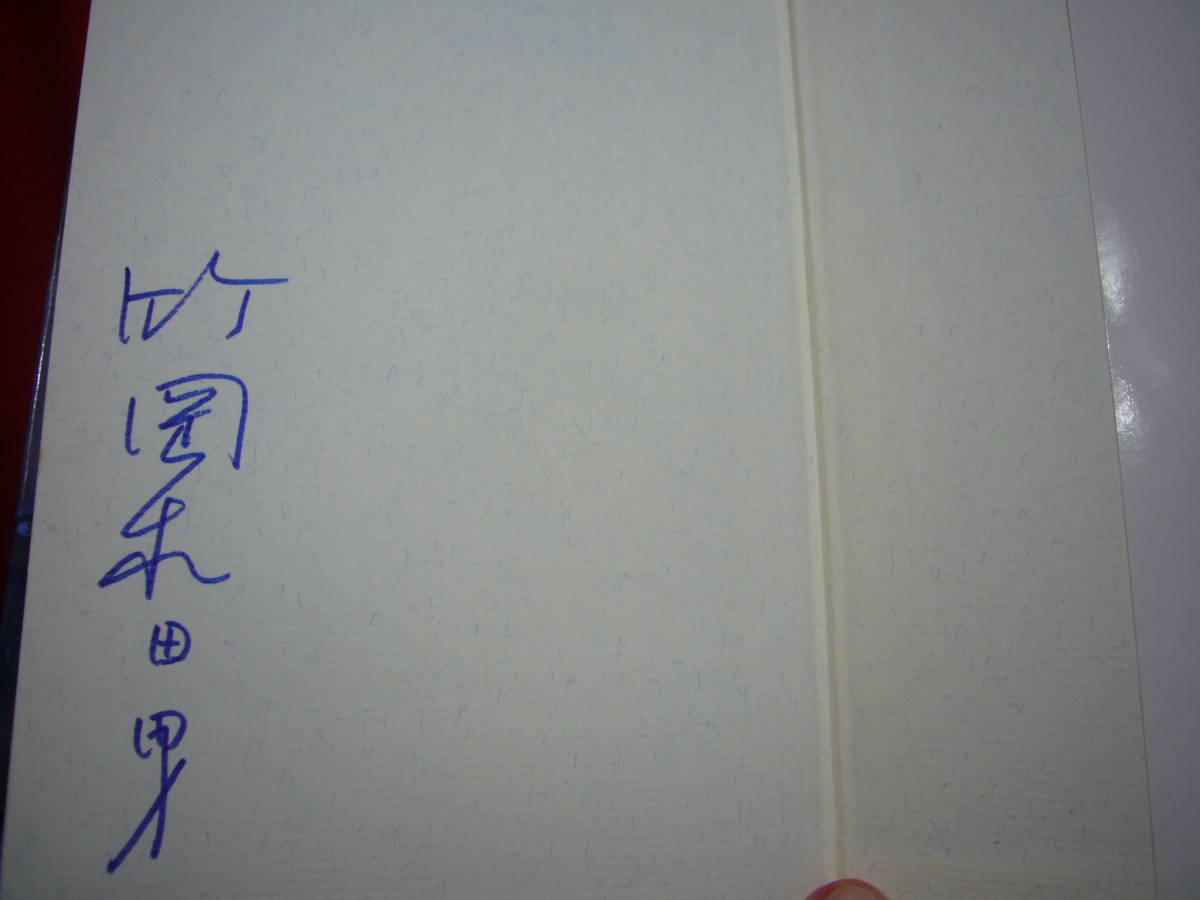 竹岡和田男